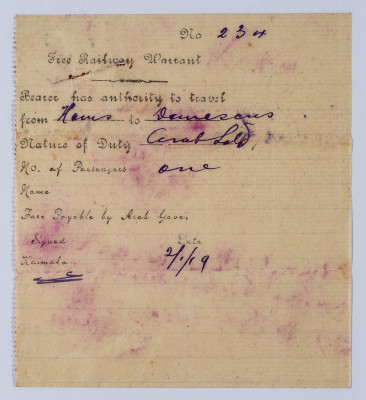 No 234
Free Railway Warrant
Bearer has authority to travel
from Homs to Damascus
Nature of Duty Arab
No. of Passengers one
Name
Fare Payable by Arab Gover.
Signed Date
2/1/19